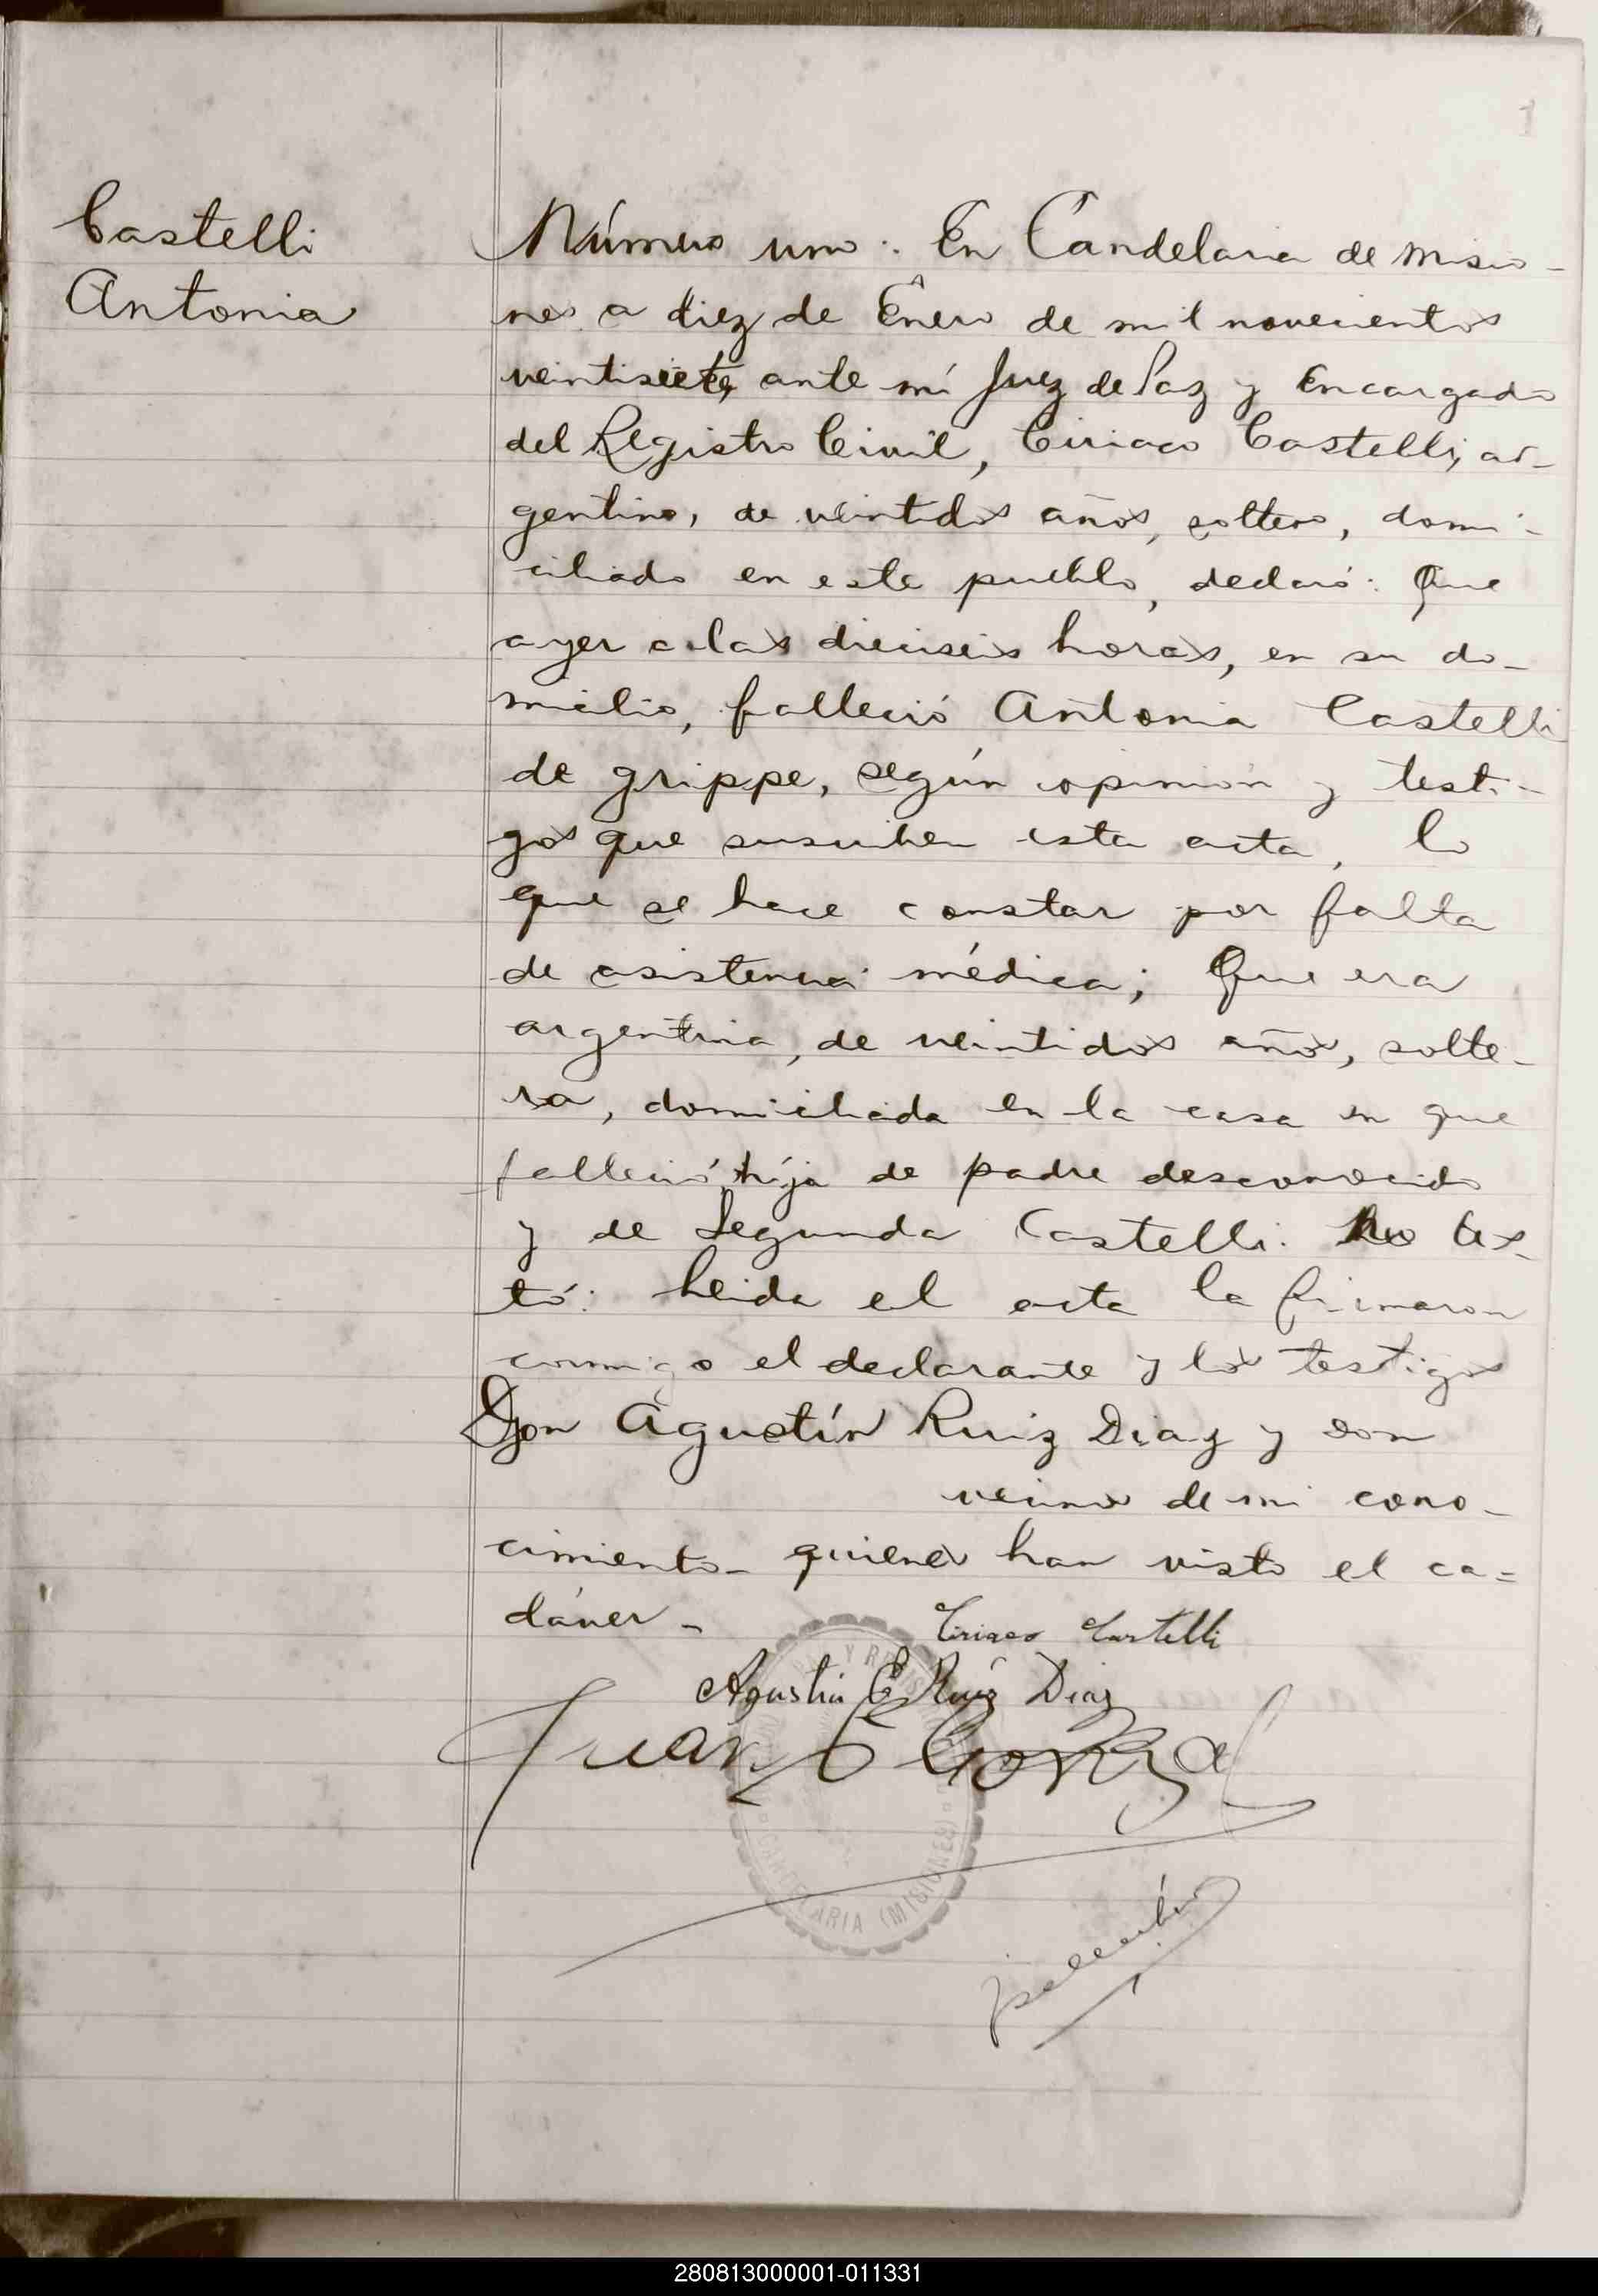 1
Castelli
Antonia
Número uno: En Candelaria de Misio-
nes a diez de Enero de mil novecientos
veintisiete, ante mí Juez de Paz y Encargado
del Registro Civil, Ciriaco Castelli, ar-
gentino, de veintidos años, soltero, domi-
ciliado en este pueblo, declaró: Que
ayer a las dieciseis horas, en su do-
micilio, falleció Antonia Castelli
de grippe, según opinión y testi-
gos que suscriben esta acta, lo
que se hace constar por falta
de asistencia médica; Que era
argentina, de veintidos años, solte-
ra, domiciliada en la casa en que
falleció, hija de padre desconocido
y de Segunda Castelli. No tes-
tó: Leida el acta la firmaron
conmigo el declarante y los testigos
Don Agustín Ruiz Diaz y don
vecinos de mi cono-
cimiento- quienes han visto el ca-
dáver-
Ciriaco Castelli
Agustin E Ruiz Diaz
Juan
Y REGISTRO
CANDELARIA (MISIONES)
280813000001-011331